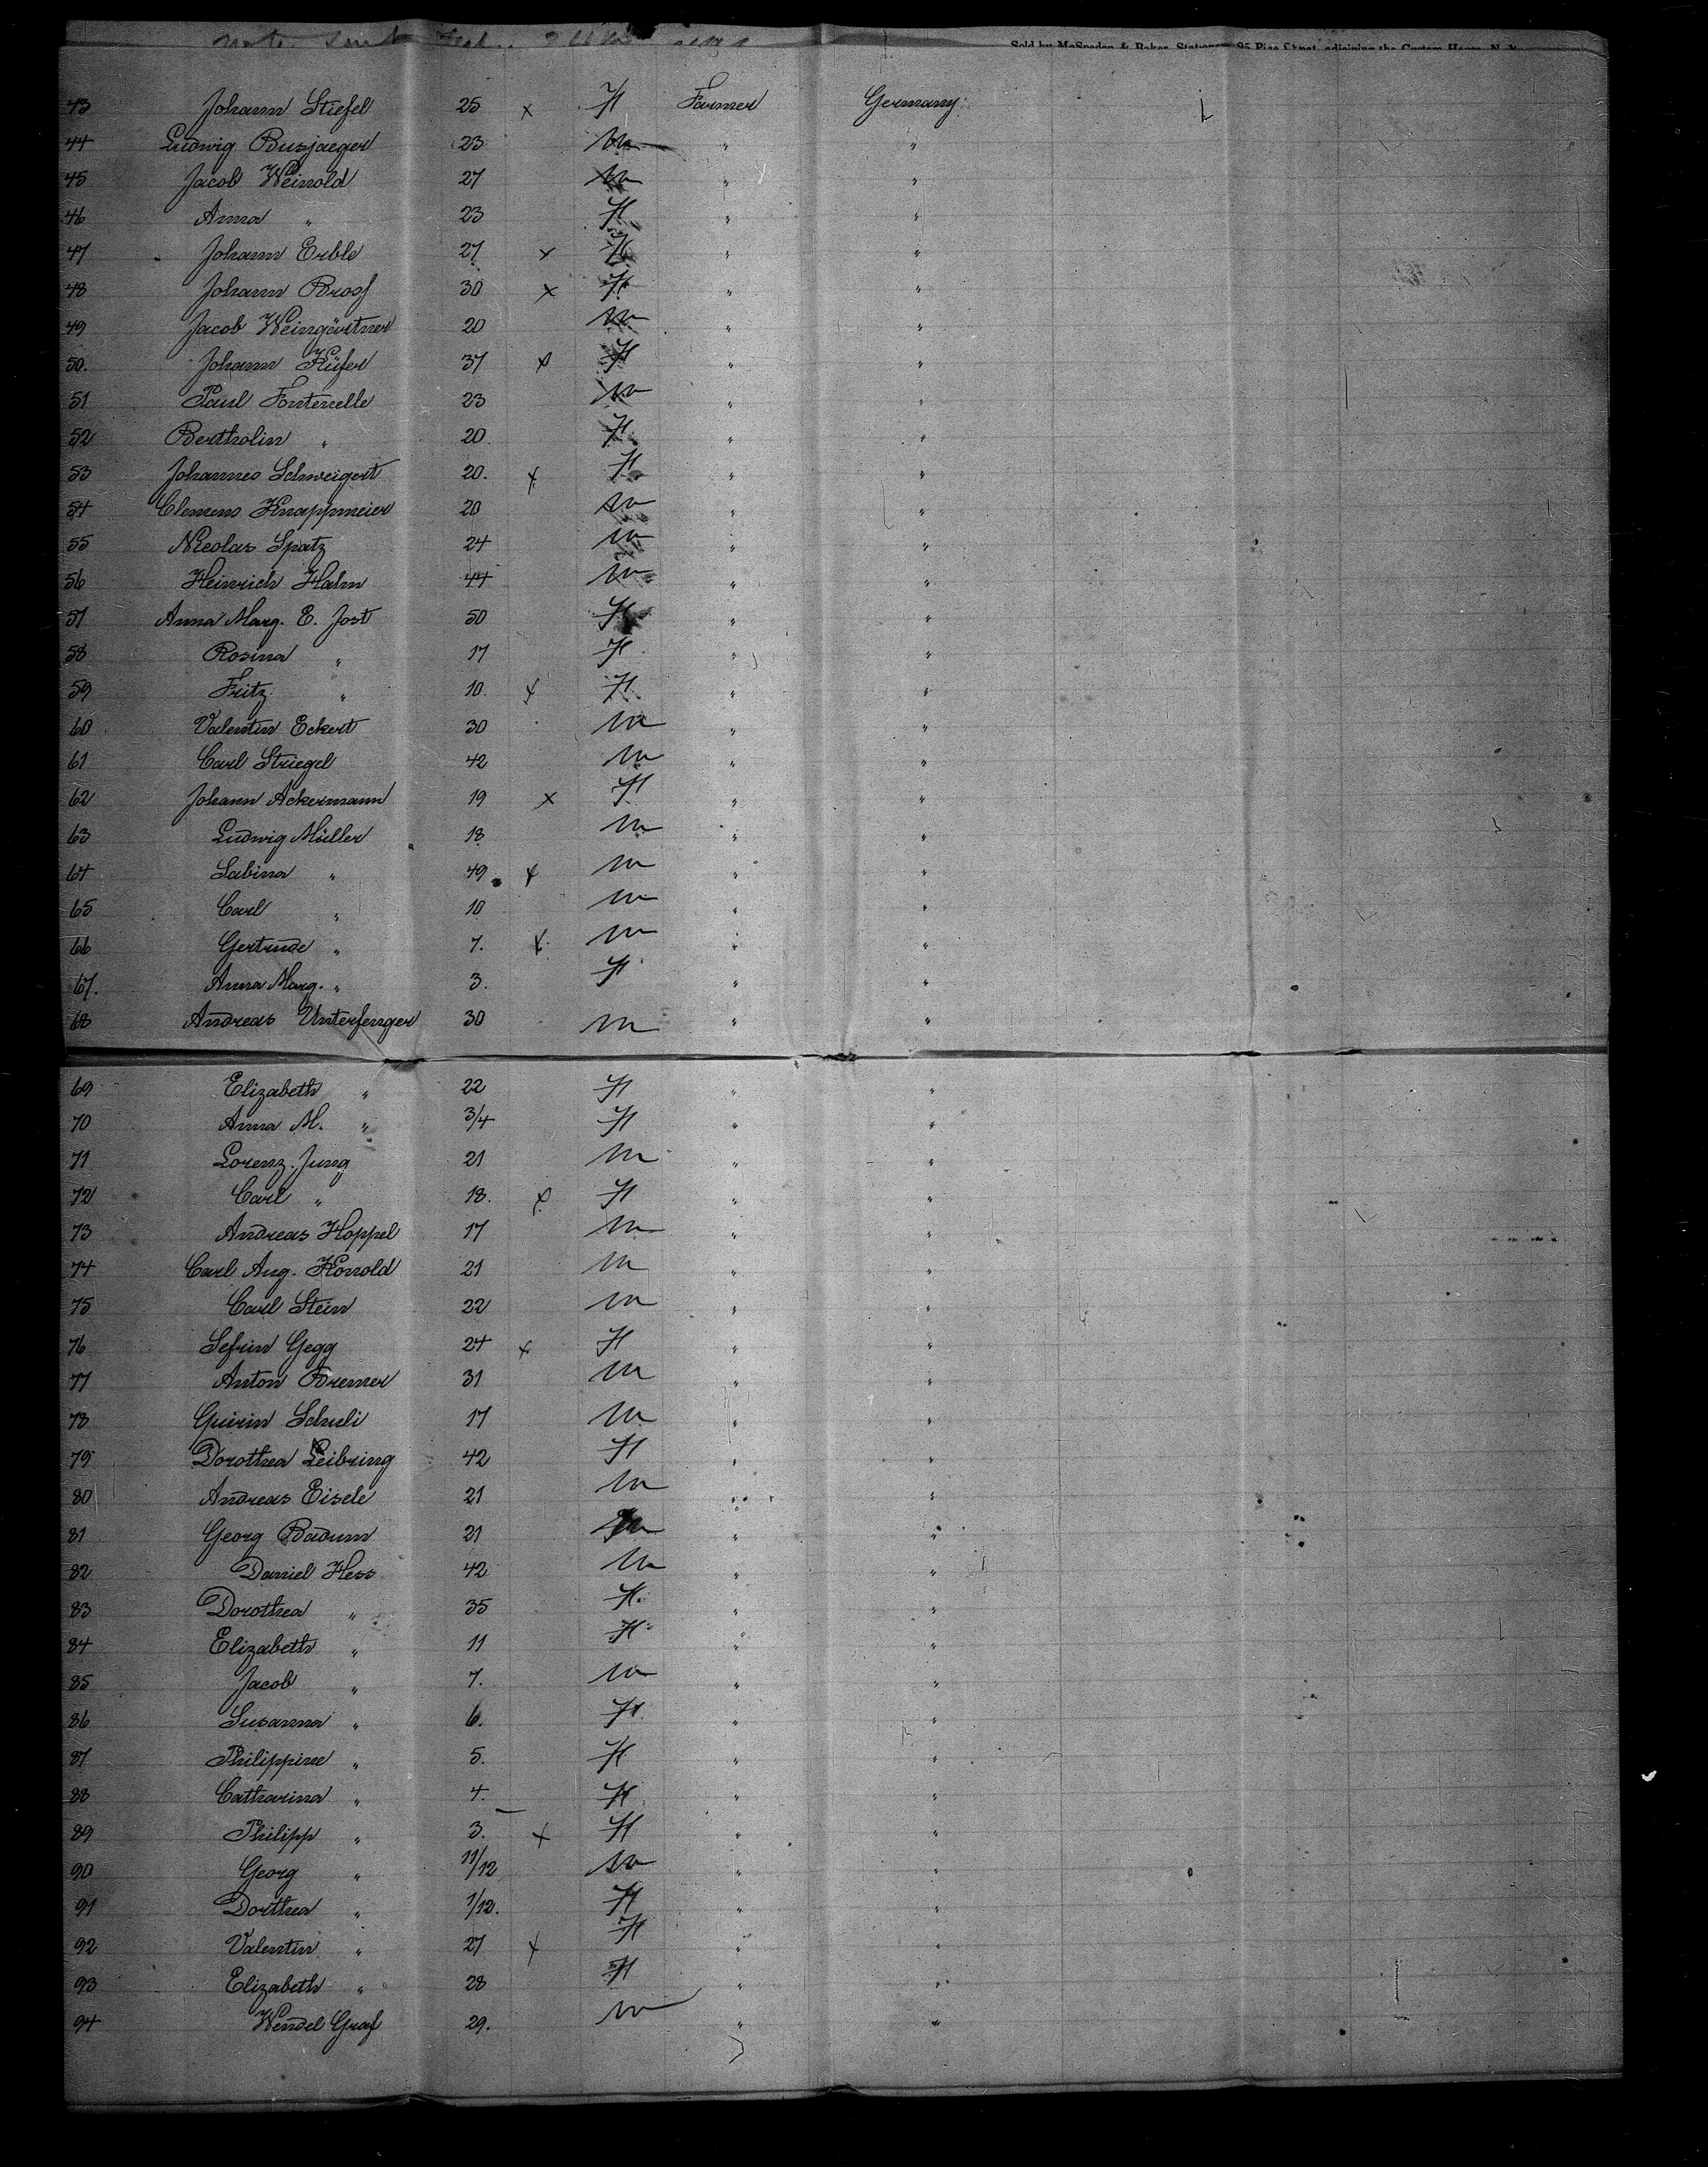 Sold by McSpedon & Baker, Stationers 25 Pine Street, adjoining the Custom House, N. Y.
43 Johann Stiefel 25 x F Farmer Germany
44 Ludwig Busjaeger 23 m " "
45 Jacob Weinold 27 m " "
46 Anna " 23 F " "
47 Johann Erble 27 x F " "
48 Johann Brosf 30 x F " "
49 Jacob Weingärtner 20 m " "
50. Johann Küfer 37 x F " "
51 Paul Fontenelle 23 m " "
52 Bertholin " 20 F " "
53 Johannes Schweigert 20. x F " "
54 Clemens Knappmeier 20 m " "
55 Nicolas Spatz 24 m " "
56 Heinrich Hahn 44 m " "
57 Anna Marg. E. Jost 50 F " "
58 Rosina " 17 F " "
59 Fritz " 10. x F " "
60 Valentin Eckert 30 m " "
61 Carl Striegel 42 m " "
62 Johann Ackermann 19 x F " "
63 Ludwig Müller 18 m " "
64 Sabina " 49 x m " "
65 Carl " 10 m " "
66 Gertrude " 7. x m " "
67. Anna Marg. " 3. F " "
68 Andreas Unterfenger 30 m " "
69 Elizabeth " 22 F " "
70 Anna M. " 3/4 F " "
71 Lorenz Jung 21 m " "
72 Carl " 18. x F " "
73 Andreas Hoppel 17 m " "
74 Carl Aug. Konold 21 m " "
75 Carl Stein 22 m " "
76 Sefrin Gegg 24 x F " "
77 Anton Bremer 31 m " "
78 Quirin Schuli 17 m " "
79 Dorothea Leibring 42 F " "
80 Andreas Eisele 21 m " "
81 Georg Badum 21 m " "
82 Daniel Hess 42 m " "
83 Dorothea " 35 F. " "
84 Elizabeth " 11 F " "
85 Jacob " 7. m " "
86 Susanna " 6. F " "
87 Philippine " 5. F " "
88 Catharina " 4. F " "
89 Philipp " 3. x F " "
90 Georg " 11/12 m " "
91 Dorthea " 1/12. F " "
92 Valentin " 27 x F " "
93 Elizabeth " 28 F " "
94 Wendel Graf 29. m " "